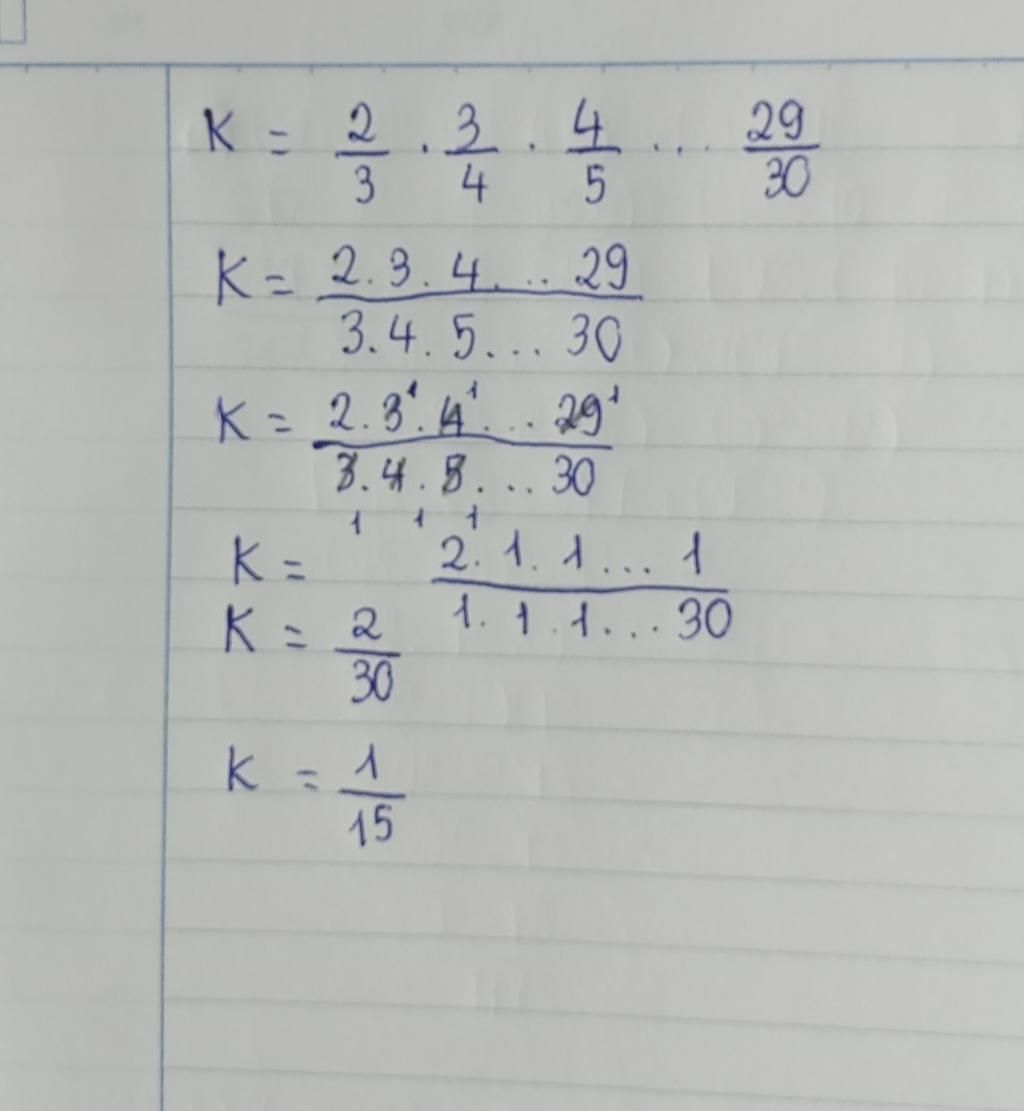 K = 2/3 . 3/4 . 4/5 ... 29/30
K = 2.3.4... 29 / 3.4.5... 30
K = 2.3¹.4¹... 29¹ / 3.4.5... 30
1 1 1
K = 2.1.1... 1 / 1.1.1... 30
K = 2/30
K = 1/15